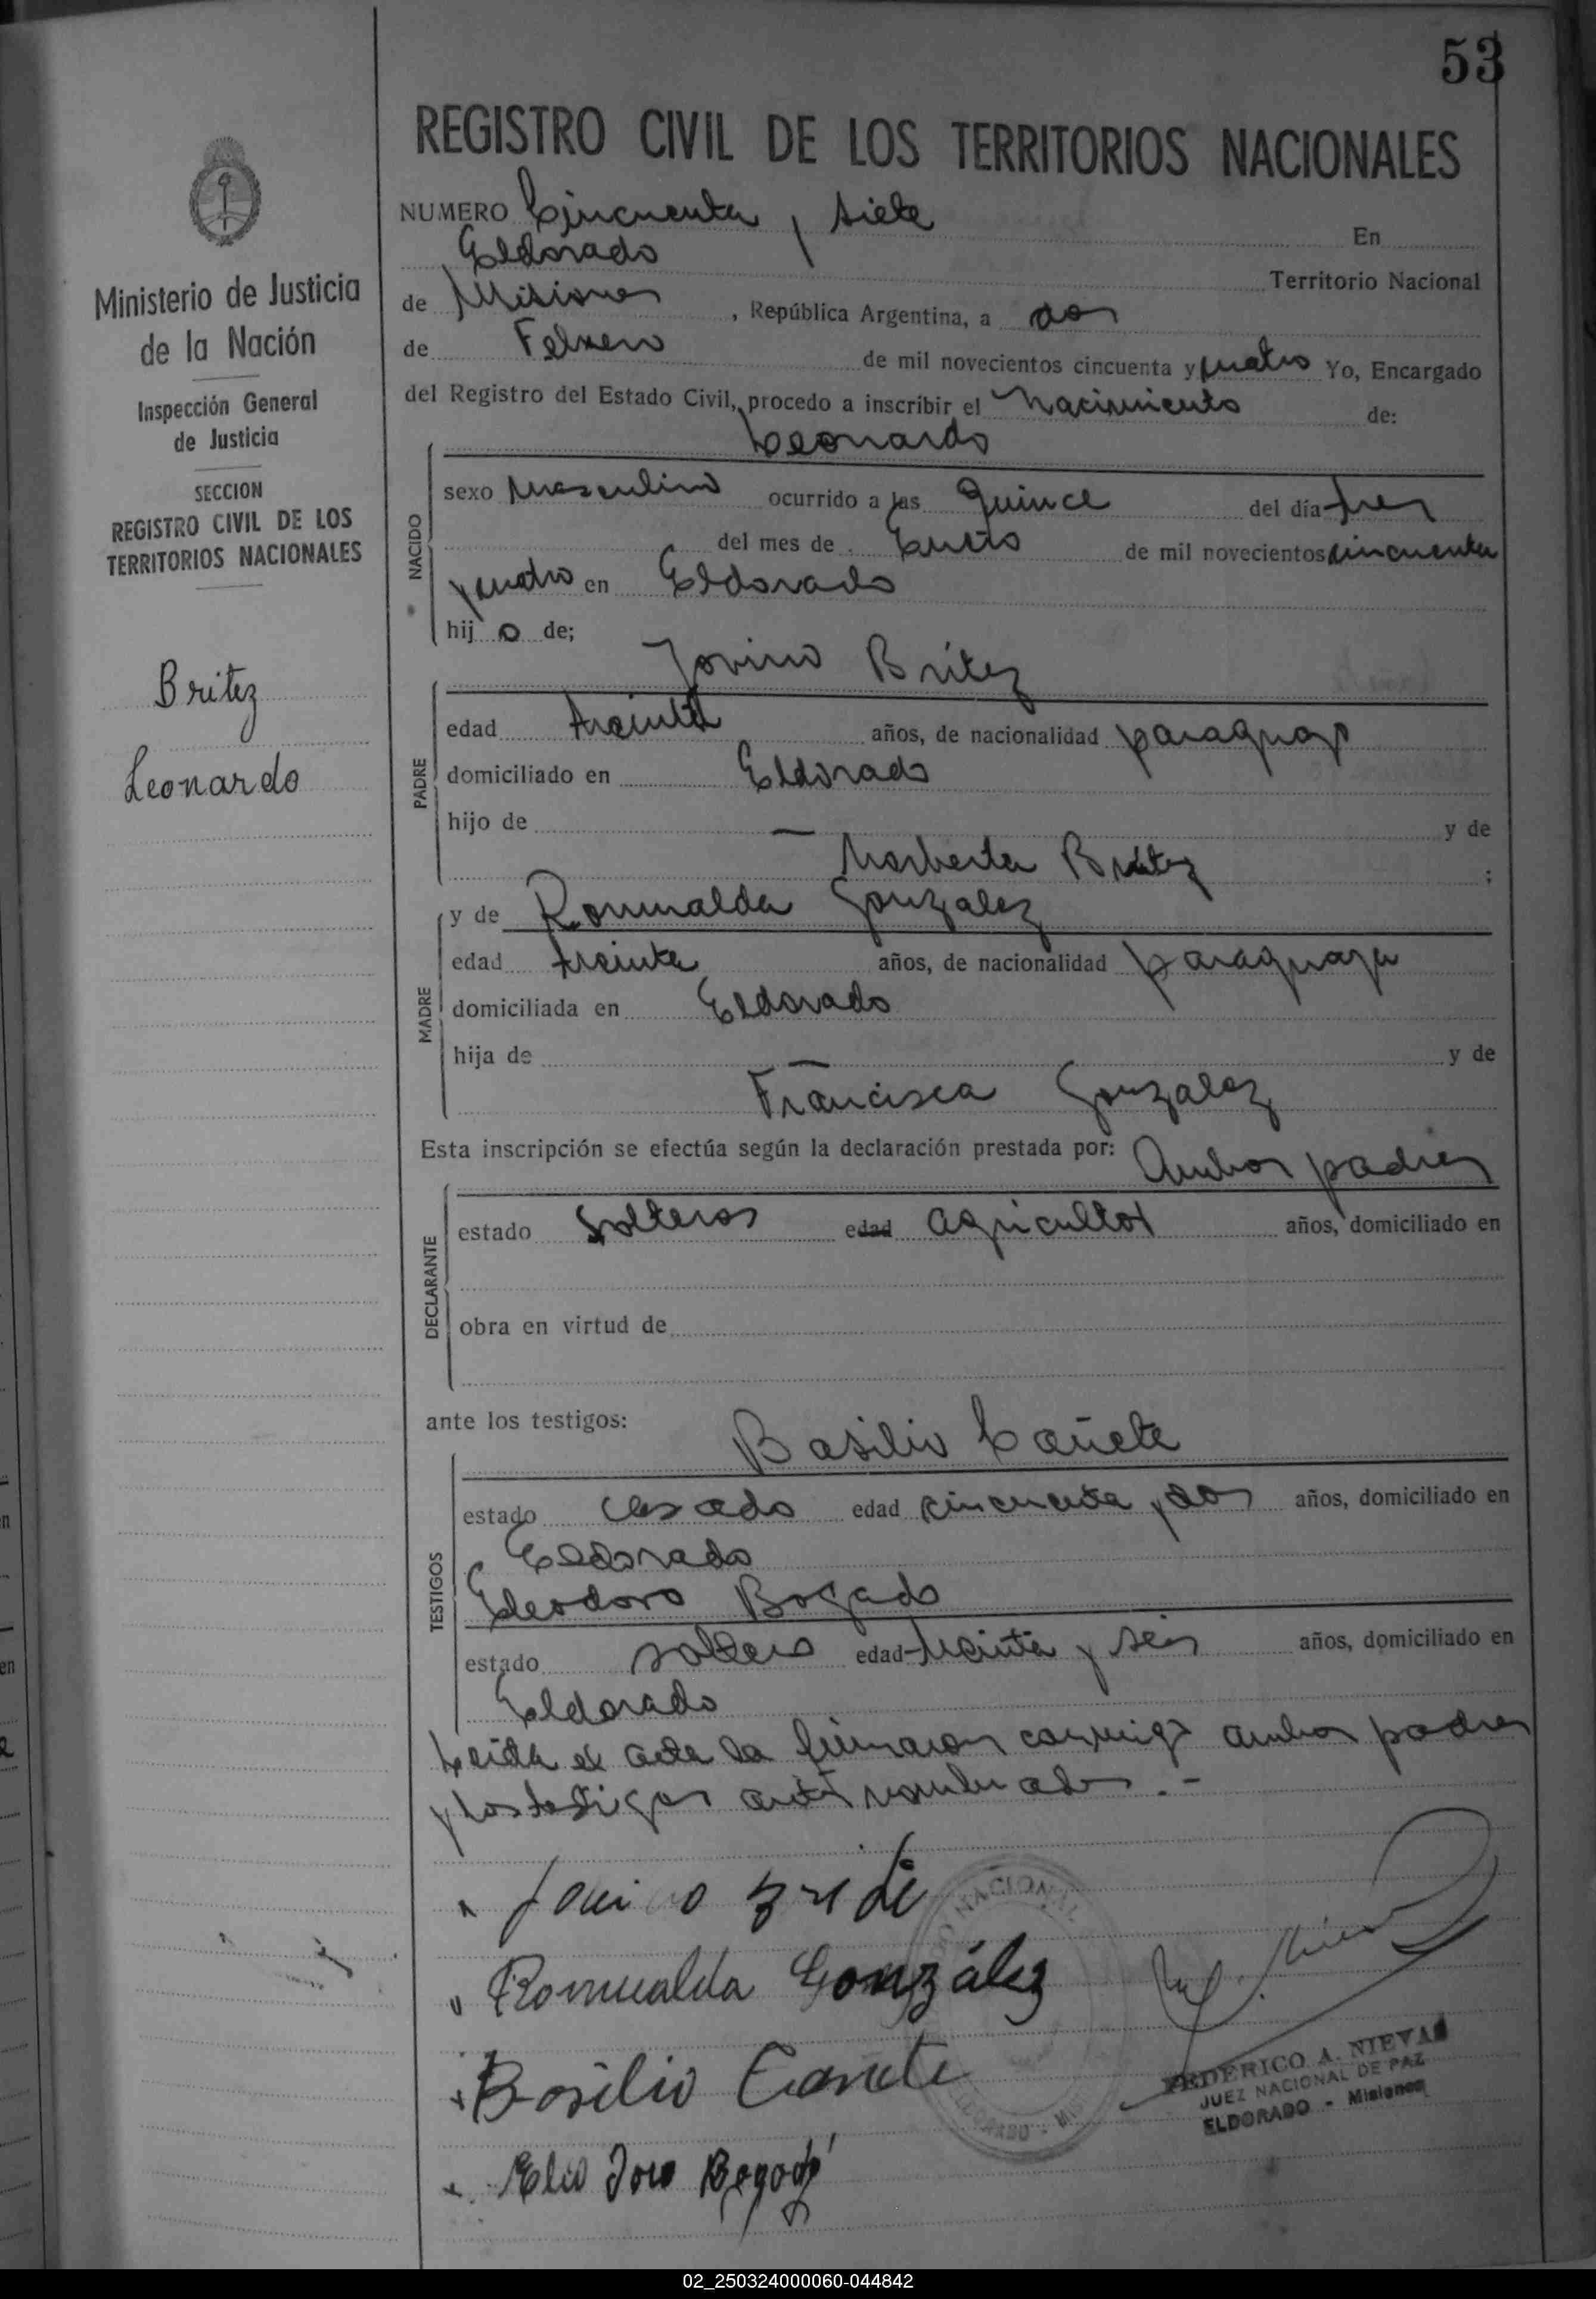 53
REGISTRO CIVIL DE LOS TERRITORIOS NACIONALES
Ministerio de Justicia
de la Nación
Inspección General
de Justicia
SECCION
REGISTRO CIVIL DE LOS
TERRITORIOS NACIONALES
Britez
Leonardo
NUMERO Cincuenta y siete En
Eldorado Territorio Nacional
de Misiones, República Argentina, a dos
de Febrero de mil novecientos cincuenta y cuatro Yo, Encargado
del Registro del Estado Civil, procedo a inscribir el Nacimiento de:
Leonardo
NACIDO
sexo Masculino ocurrido a las Quince del día tres
del mes de Enero de mil novecientos cincuenta
y cuatro en Eldorado
hijo de;
Jovino Britez
PADRE
edad treinta años, de nacionalidad paraguayo
domiciliado en Eldorado
hijo de — y de
Norberta Britez ;
MADRE
y de Romualda Gonzalez
edad treinta años, de nacionalidad paraguaya
domiciliada en Eldorado
hija de — y de
Francisca Gonzalez
Esta inscripción se efectúa según la declaración prestada por: Ambos padres
DECLARANTE
estado Solteros edad agricultor años, domiciliado en
obra en virtud de
ante los testigos:
Basilio Cañete
TESTIGOS
estado casado edad cincuenta y dos años, domiciliado en
Eldorado
Eleodoro Bogado
estado soltero edad treinta y seis años, domiciliado en
Eldorado
Leida el acta la firmaron conmigo ambos padres
y los testigos antes nombrados.-
Romualda González
Basilio Canete
Elio Doro Bogado
NACIONAL
ELDORADO - MIS
FEDERICO A. NIEVAS
JUEZ NACIONAL DE PAZ
ELDORADO - Misiones
02_250324000060-044842